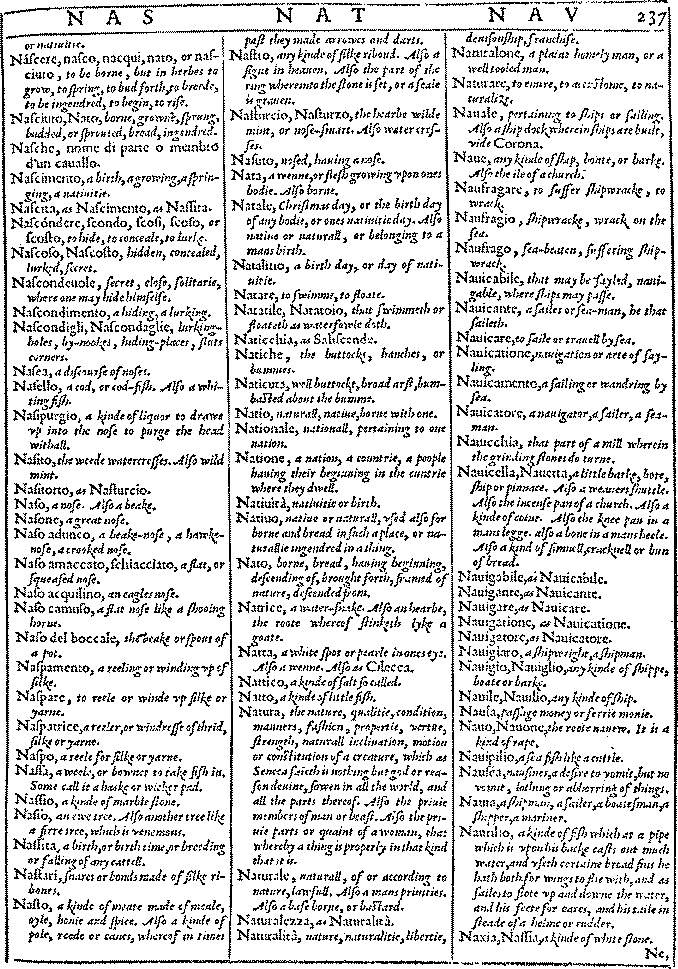 NAS NAT NAV 237
or natiuitie.
Náscere, nasco, nacqui, nato, or nas-
ciuto, to be borne, but in herbes to
grow, to spring, to bud forth, to breede,
to be ingendred, to begin, to rise.
Nasciuto, Nato, borne, growne, sprung,
budded, or sprouted, bread, ingendred.
Nasche, nome di parte o membro
d'un cauallo.
Nascimento, a birth, a growing, a sprin-
ging, a natiuitie.
Nascita, as Nascimento, as Nassita.
Nascóndere, scondo, scosi, scoso, or
scosto, to hide, to conceale, to lurke.
Nascoso, Nascosto, hidden, concealed,
lurked, secret.
Nascondeuole, secret, close, solitarie,
where one may hide himselfe.
Nascondimento, a hiding, a lurking.
Nascondigli, Nascondaglie, lurking-
holes, by-nookes, hiding-places, sluts
corners.
Nasea, a discourse of noses.
Nasello, a cod, or cod-fish. Also a whi-
ting fish.
Nasipurgio, a kinde of liquor to drawe
vp into the nose to purge the head
withall.
Nasito, the weede watercresses. Also wild
mint.
Nasitorto, as Nasturcio.
Naso, a nose. Also a beake.
Nasone, a great nose.
Naso adunco, a beake-nose, a hawke-
nose, a crooked nose.
Naso amaccato, schiacciato, a flat, or
squeased nose.
Naso acquilino, an eagles nose.
Naso camuso, a flat nose like a shooing
horne.
Naso del boccale, the beake or spout of
a pot.
Naspamento, a reeling or winding vp of
silke.
Naspare, to reele or winde vp silke or
yarne.
Naspatrice, a reeler, or windresse of thrid,
silke or yarne.
Naspo, a reele for silke or yarne.
Nassa, a weele, or bownet to take fish in.
Some call it a haske or wicker pad.
Nassio, a kinde of marble stone.
Nasio, an ewe tree. Also another tree like
a firre tree, which is venemous.
Nassita, a birth, or birth time, or breeding
or falling of any cattell.
Nastari, snares or bonds made of silke ri-
bones.
Nasto, a kinde of meate made of meale,
oyle, honie and spice. Also a kinde of
pole, reede or canes, whereof in times
past they made arrowes and darts.
Nastro, any kinde of silke riboud. Also a
signe in heauen. Also the part of the
ring whereinto the stone is set, or a seale
is grauen.
Nasturcio, Nasturzo, the hearbe wilde
mint, or nose-smart. Also water cres-
ses.
Nasuto, nosed, hauing a nose.
Nata, a wenne, or flesh growing vpon ones
bodie. Also borne.
Natale, Christmas day, or the birth day
of any bodie, or ones natiuitie day. Also
natiue or naturall, or belonging to a
mans birth.
Natalitio, a birth day, or day of nati-
uitie.
Natare, to swimme, to floate.
Natatile, Natatoio, that swimmeth or
floateth as waterfowle doth.
Naticchia, as Saliscendo.
Natiche, the buttocks, hanches, or
bummes.
Naticuta, well buttockt, broad arst, bum-
basted about the bumme.
Natio, naturall, natiue, borne with one.
Nationale, nationall, pertaining to one
nation.
Natione, a nation, a countrie, a people
hauing their beginning in the cuntrie
where they dwell.
Natiuità, natiuitie or birth.
Natiuo, natiue or naturall, vsed also for
borne and bread in such a place, or na-
turallie ingendred in a thing.
Nato, borne, bread, hauing beginning,
descending of, brought forth, framed of
nature, descended from.
Natrice, a water-snake. Also an hearbe,
the roote whereof stinketh lyke a
goate.
Natta, a white spot or pearle in ones eye.
Also a wenne. Also as Cilecca.
Nattico, a kinde of salt so called.
Natto, a kinde of little fish.
Natura, the nature, qualitie, condition,
manners, fashion, propertie, vertue,
strength, naturall inclination, motion
or constitution of a creature, which as
Seneca saieth is nothing but god or rea-
son deuine, sowen in all the world, and
all the parts thereof. Also the priuie
members of man or beast. Also the pri-
uie parts or quaint of a woman, that
whereby a thing is properly in that kind
that it is.
Naturale, naturall, of or according to
nature, lawfull. Also a mans priuities.
Also a base borne, or bastard.
Naturalezza, as Naturalità.
Naturalità, nature, naturalitie, libertie,
denisonship, franchise.
Naturalone, a plaine homely man, or a
well tooled man.
Naturare, to enure, to accustome, to na-
turalize.
Nauale, pertaining to ships or sailing.
Also a ship dock wherein ships are built,
vide Corona.
Naue, any kinde of ship, boate, or barke.
Also the ile of a church.
Naufragare, to suffer shipwracke, to
wrack.
Naufragio, shipwracke, wrack on the
sea.
Naufrago, sea-beaten, suffering ship-
wrack.
Nauicabile, that may be sayled, naui-
gable, where ships may passe.
Nauicante, a sailer or sea-man, he that
saileth.
Nauicare, to saile or trauell by sea.
Nauicatione, nauigation or arte of say-
ling.
Nauicamento, a sailing or wandring by
sea.
Nauicatore, a nauigator, a sailer, a sea-
man.
Nauicchia, that part of a mill wherein
the grinding stones do turne.
Nauicella, Nauetta, a little barke, bote,
ship or pinnace. Also a weauers shuttle.
Also the incense pan of a church. Also a
kinde of coine. Also the knee pan in a
mans legge. also a bone in a mans heele.
Also a kind of simnell, cracknell or bun
of bread.
Nauigabile, as Nauicabile.
Nauigante, as Nauicante.
Nauigare, as Nauicare.
Nauigatione, as Nauicatione.
Nauigatore, as Nauicatore.
Nauigiaro, a shipwright, a shipman.
Nauigio, Nauiglio, any kinde of shippe,
boate or barke.
Nauile, Nauilio, any kinde of ship.
Naula, passage money or ferrie monie.
Nauo, Nauone, the roote nauew. It is a
kind of rape.
Nauipilio, a sea fish like a cuttle.
Nausea, nausines, a desire to vomit, but no
vomit, lothing or abhorring of things.
Nauta, a shipman, a sailer, a boatesman, a
shipper, a mariner.
Nautilio, a kinde of fish which as a pipe
which is vpon his backe casts out much
water, and vseth certaine broad fins he
hath both for wings to flie with, and as
sailes to flote vp and downe the water,
and his feete for oares, and his taile in
steade of a helme or rudder.
Naxia, Nassia, a kinde of white stone.
Ne,